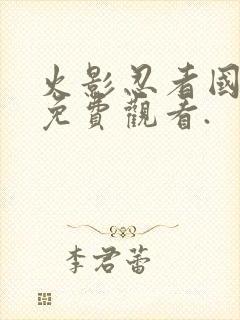 火影忍者國
免費觀看.
李君蕾